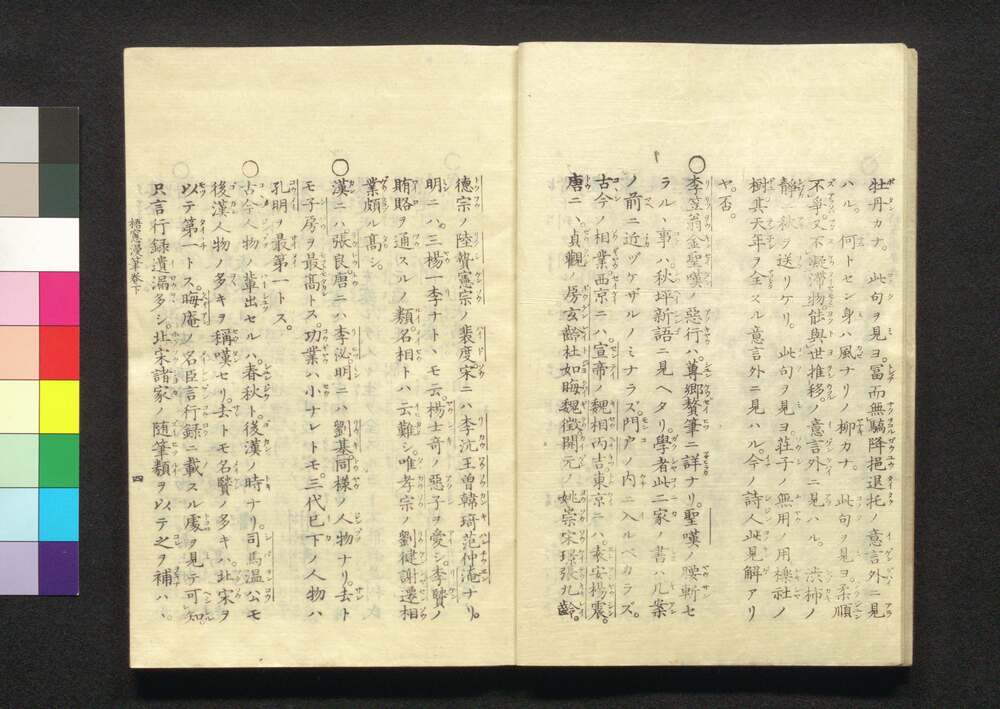 牡丹カナ。此句ヲ見ヨ。冨而無驕降挹退托ノ意言外ニ見
ハル。何トセン身ハ風ナリノ柳カナ。此句ヲ見ヨ柔順
不爭。又不凝滯物能與世推移。ノ意言外ニ見ハル。渋柿ノ
静ニ秋ヲ送リケリ。此句ヲ見ヨ。荘子ノ無用ノ用櫟社ノ
樹其天年ヲ全スル意言外ニ見ハル。今ノ詩人此見解アリ
ヤ。否。
○李笠翁金聖嘆ノ惡行ハ。蕁郷贅筆ニ詳ナリ。聖嘆ノ腰斬セ
ラルヽ事ハ。秋坪新語ニ見ヘタリ。學者此二家ノ書ハ几案
ノ前ニ近ヅケザルノミナラズ。門戸ノ内ニ入ルベカラズ。
古今ノ相業西京ニハ。宣帝ノ魏相丙吉東京ニハ。袁安楊震。
唐ニハ貞觀ノ房玄齡杜如晦魏徴開元ノ姚崇宋璟張九齡。
德宗ノ陸贄憲宗ノ裴度宋ニハ李沆王曽韓琦范仲淹ナリ。
明ニハ。三楊一李ナトヽモ云。楊士奇ノ惡子ヲ愛シ。李賢ノ
賄賂ヲ通スルノ類。名相トハ云難シ。唯孝宗ノ劉健謝遷相
業頗ル髙シ。
○漢ニハ張良唐ニハ李泌明ニハ劉基同様ノ人物ナリ。去ト
モ子房ヲ最髙トス。功業ハ小ナレトモ。三代已下ノ人物ハ
孔明ヲ最第一トス。
○古今人物ノ輩出セルハ。春秋ト後漢ノ時ナリ。司馬温公モ
後漢人物ノ多キヲ稱嘆セリ。去トモ名賢ノ多キハ。北宋ヲ
以テ第一トス。晦庵ノ名臣言行録ニ載スル處ヲ見テ可知。
只言行録遺漏多シ。北宋諸家ノ随筆類ヲ以テ之ヲ補ハヽ。
梧窓漫筆巻下
四